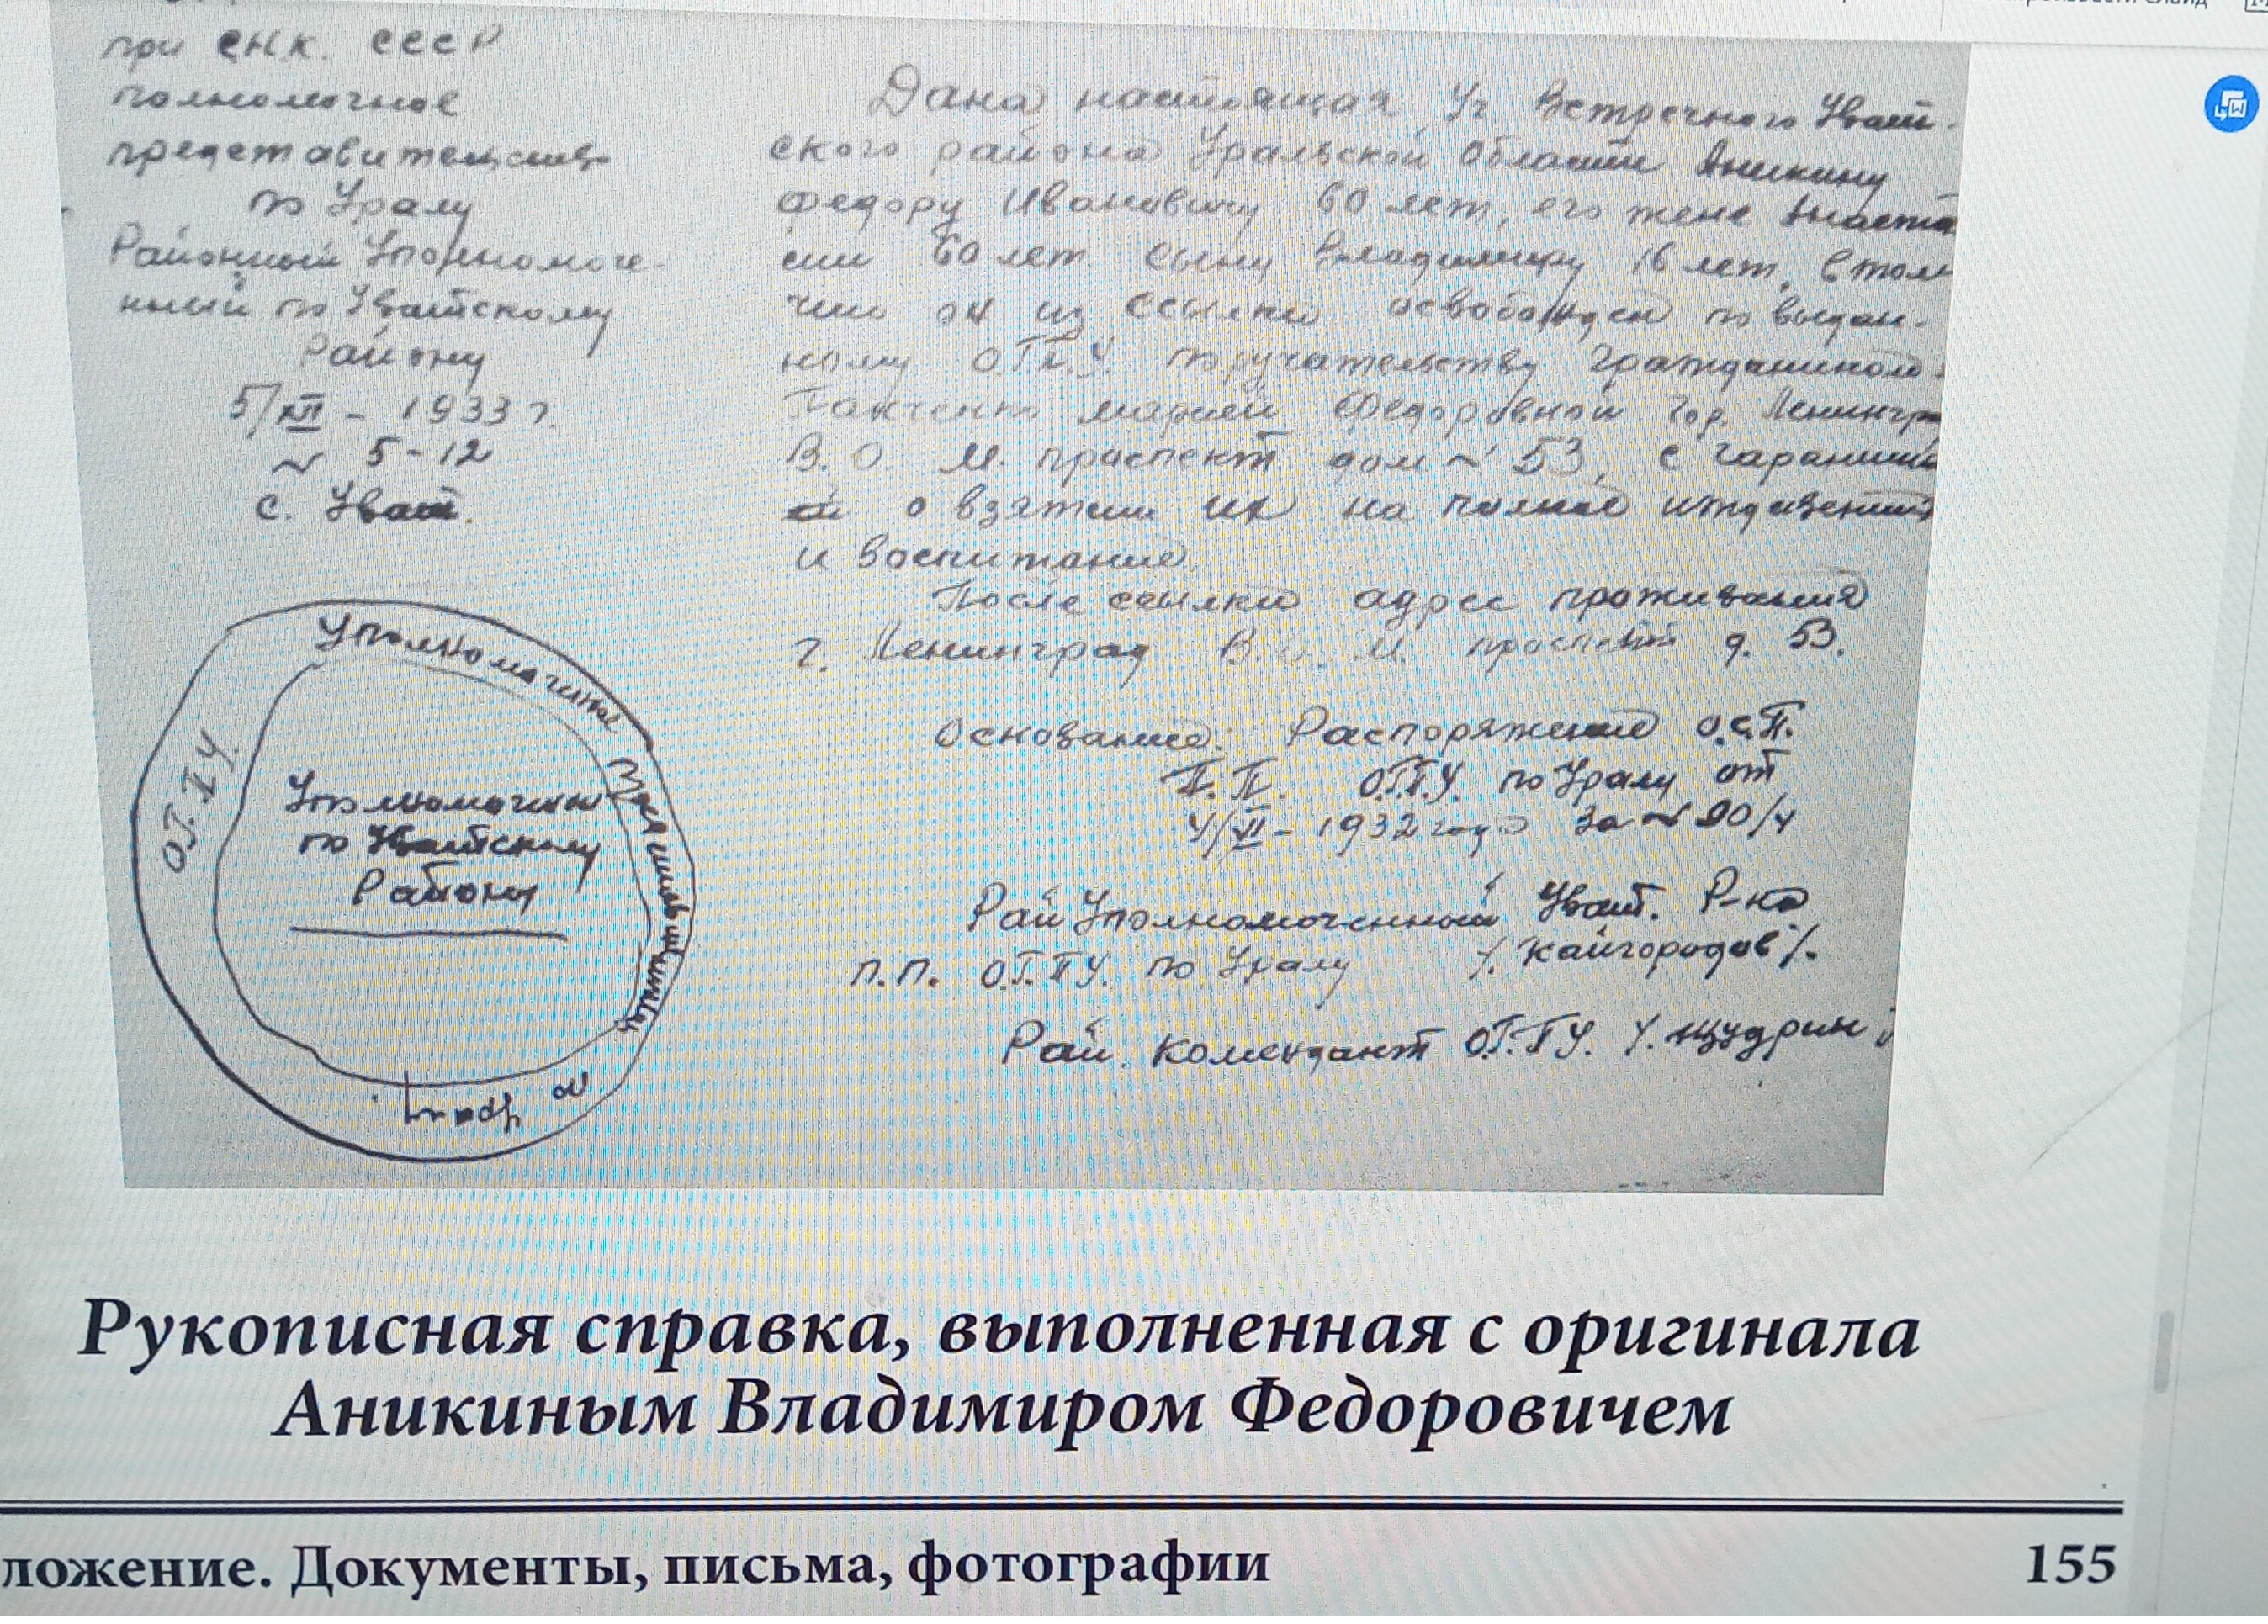 при СНК. СССР
полномочное
представительство
по Уралу
Районный Уполномоче-
ный по Уватскому
Району
5/XII - 1933 г.
~ 5-12
с. Уват.
Дана настоящая, Уч. Встречного Уват-
ского района Уральской Области Аникину
Федору Ивановичу 60 лет, его жене Анаста
сии 60 лет сыну Владимиру 16 лет, в том
что он из ссылки освобожден по выдан-
ному О.Г.П.У. поручательству гражданином
Марией Федоровной гор. Ленингр
В.О. М. проспект дом ~ 53, с гаранти
о взятии их на полное иждивении
и воспитание.
После ссылки адрес проживания
г. Ленинград В.О. М. проспект д. 53.
Основание: Распоряжение О.С.П.
П.П. О.Г.П.У. по Уралу от
4/VI - 1932 года за ~ 90/4
Рай Уполномоченный Уват. Р-на
п.п. О.Г.П.У. по Уралу /. Кайгородов /.
Рай. комендант О.Г.П.У. /. Щудрин /
О.Г.П.У. Уполномочиное Представительство
по Уралу.
Уполномочены
по Уватскому
Району
Рукописная справка, выполненная с оригинала
Аникиным Владимиром Федоровичем
ложение. Документы, письма, фотографии
155